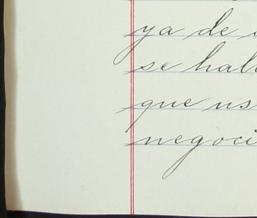 ya de
se hal
que us
negoci